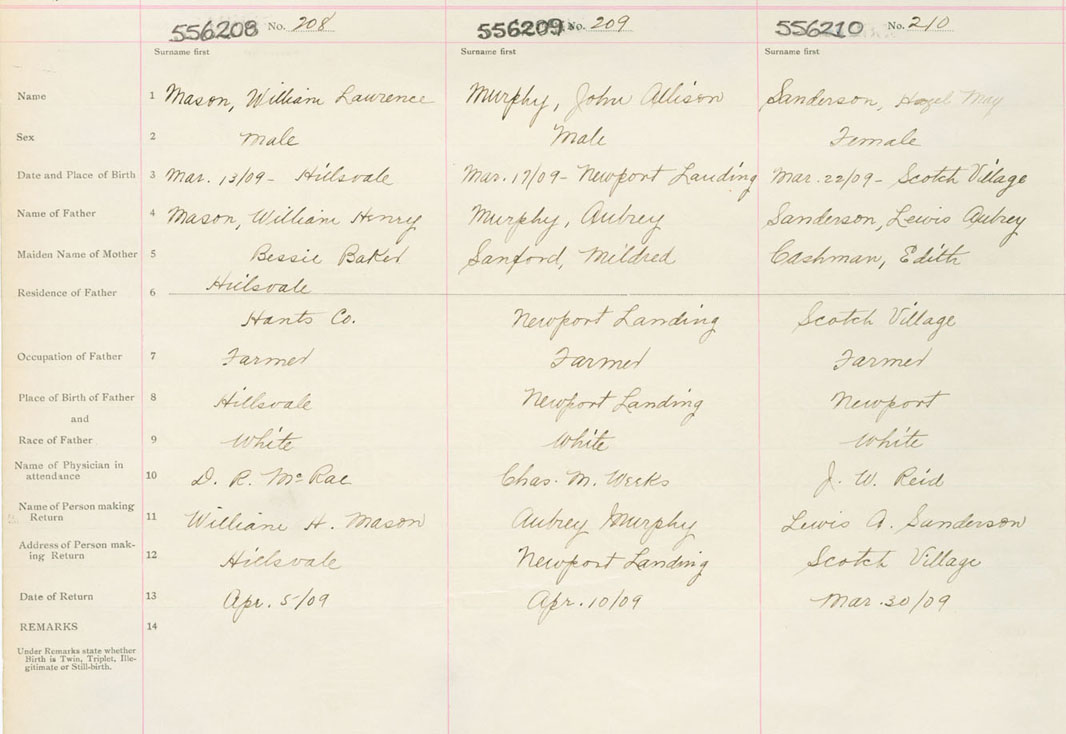 556208 No. 208 556209 No. 209 556210 No. 210
Surname first Surname first Surname first
Name 1 Mason, William Lawrence Murphy, John Allison Sanderson, Hazel May
Sex 2 Male Male Female
Date and Place of Birth 3 Mar. 13/09 - Hillsvale Mar. 17/09 - Newport Landing Mar. 22/09 - Scotch Village
Name of Father 4 Mason, William Henry Murphy, Aubrey Sanderson, Lewis Aubrey
Maiden Name of Mother 5 Bessie Baker Sanford, Mildred Cashman, Edith
Residence of Father 6 Hillsvale
Hants Co. Newport Landing Scotch Village
Occupation of Father 7 Farmer Farmer Farmer
Place of Birth of Father 8 Hillsvale Newport Landing Newport
and
Race of Father 9 White White White
Name of Physician in
attendance 10 D. R. McRae Chas. M. Weeks J. W. Reid
Name of Person making
Return 11 William H. Mason Aubrey Murphy Lewis A. Sanderson
Address of Person mak-
ing Return 12 Hillsvale Newport Landing Scotch Village
Date of Return 13 Apr. 5/09 Apr. 10/09 Mar. 30/09
REMARKS 14
Under Remarks state whether
Birth is Twin, Triplet, Ille-
gitimate or Still-birth.